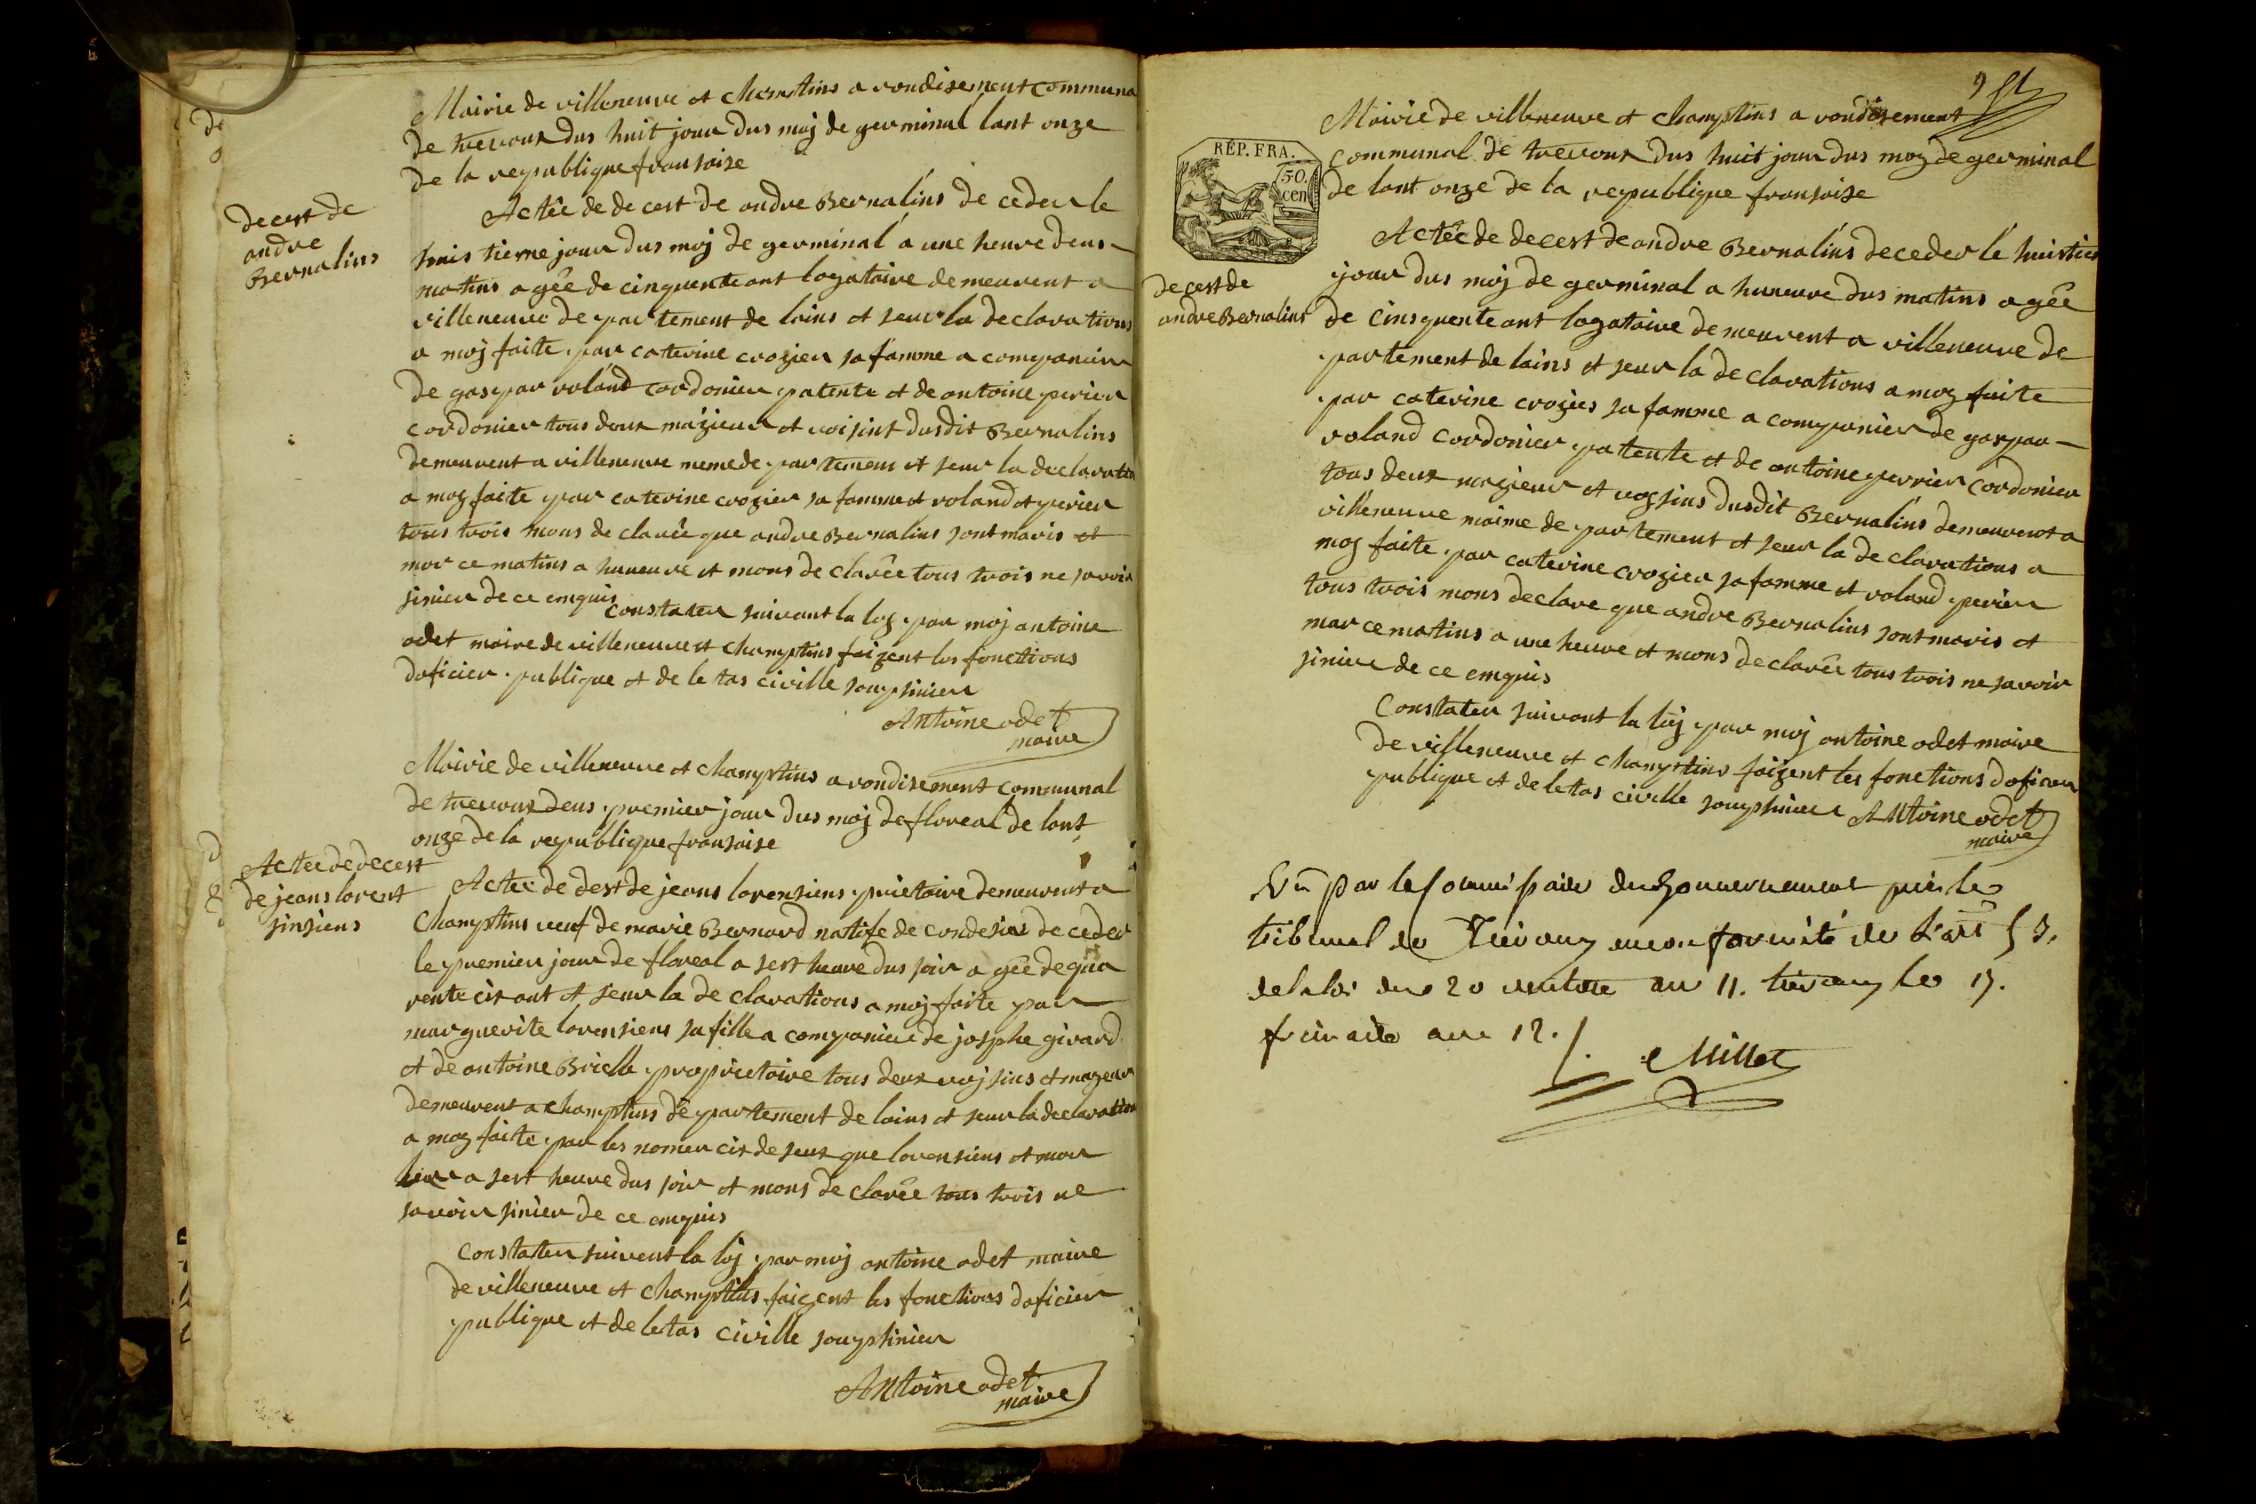 Mairie de villeneuve et chamtins a rondisement communa
de trevoux dus huit jour dus moj de germinal lant onze
de la republique fransoise
decest de
andre
Bernalins
Actêe de decest de andre Bernalins de ceder le
huis tieme jour dus moj de germinal a une heure deus
matins a gêe de cinquente ant logataire demeurent a
villeneuve de partement de lains et seur la declarations
a moj faite par caterine crozier sa famme a companier
de gaspar roland cordonier patente et de antoine perier
cordonier tous deux mazieur et voisint dusdit Bernalins
demeurent a villeneuve meme de partement et seur la declaration
a moy faite par caterine crozier sa famme et roland et perier
tous trois mons de clarêe que andre Bernalins sont maris et
mor ce matins a huneure et mons de clarêe tous trois ne savoir
sinier de ce enquis
constater suivant la loy par moj antoine
odet maire de villeneuve et chamtins faizent les fonctions
doficier publique et de le tas civille soupsinier
Antoine odet
maire
Mairie de villeneuve et chamtins a rondisement communal
de trevoux deus premier jour dus moj de floreal de lant
onze de la republique fransoise
Actêe de decest
de jeans lorent
sinsiens
Actêe de dest de jeans lorensiens prietaire demeurent a
chamtins veuf de marie Bernard natife de condesias de ceder
le premier jour de floreal a sest heure dus soir a gêe de qua
rente cis ant et seur la de clarations a moj faite par
marguerite lorensiens sa fille a companier de josphe girard
et de antoine Brielle proprietaire tous deux vojsins et mazeur
demeurent a chamtins de partement de lains et seur la declaration
a moy faite par les nomer cis deseux que lorensiens et mor
hier a sest heure dus soir et mons de clarêe tous trois ne
savoir sinier de ce enquis
Constater suivent la loj par moj antoine odet maire
de villeneuve et chamtins faizent les fonctions doficier
publique et de letas civille soupsinier
Antoine odet
maire
Mairie de villeneuve et chamtins a rondisement
RÉP. FRA.
50.
cen
communal de trevoux dus huit jour dus moy de germinal
de lant onze de la republique fransoise
decest de
andre Bernalins
Actêe de decest de andre Bernalins deceder le huistiem
jour dus moj de germinal a huneure dus matins a gêe
de cinsquente ant logataire demeurent a villeneuve de
partement de lains et seur la de clarations a moy faite
par caterine crozier sa famme a companier de gaspar
roland cordonier patente et de antoine perrier cordonier
tous deux mazieur et voysins dusdit Bernalins demeurent a
villeneuve maime de partement et seur la de clarations a
moy faite par caterine crozier sa famme et roland perier
tous trois mons declare que andre Bernalins sont maris et
mar ce matins a une heure et mons declarêe tous trois ne savoir
sinier de ce enquis
Constater suivant la loj par moj antoine odet maire
de villeneuve et chamtins faizent les fonctions doficier
publique et de letas civille soupsinier Antoine odet
maire
Vû par le Commissaire du Gouvernement près le
tribunal de Trévoux en conformité de l'art 53.
de la loi du 20 ventose an 11. trévoux le 17.
frimaire an 12.
Millet